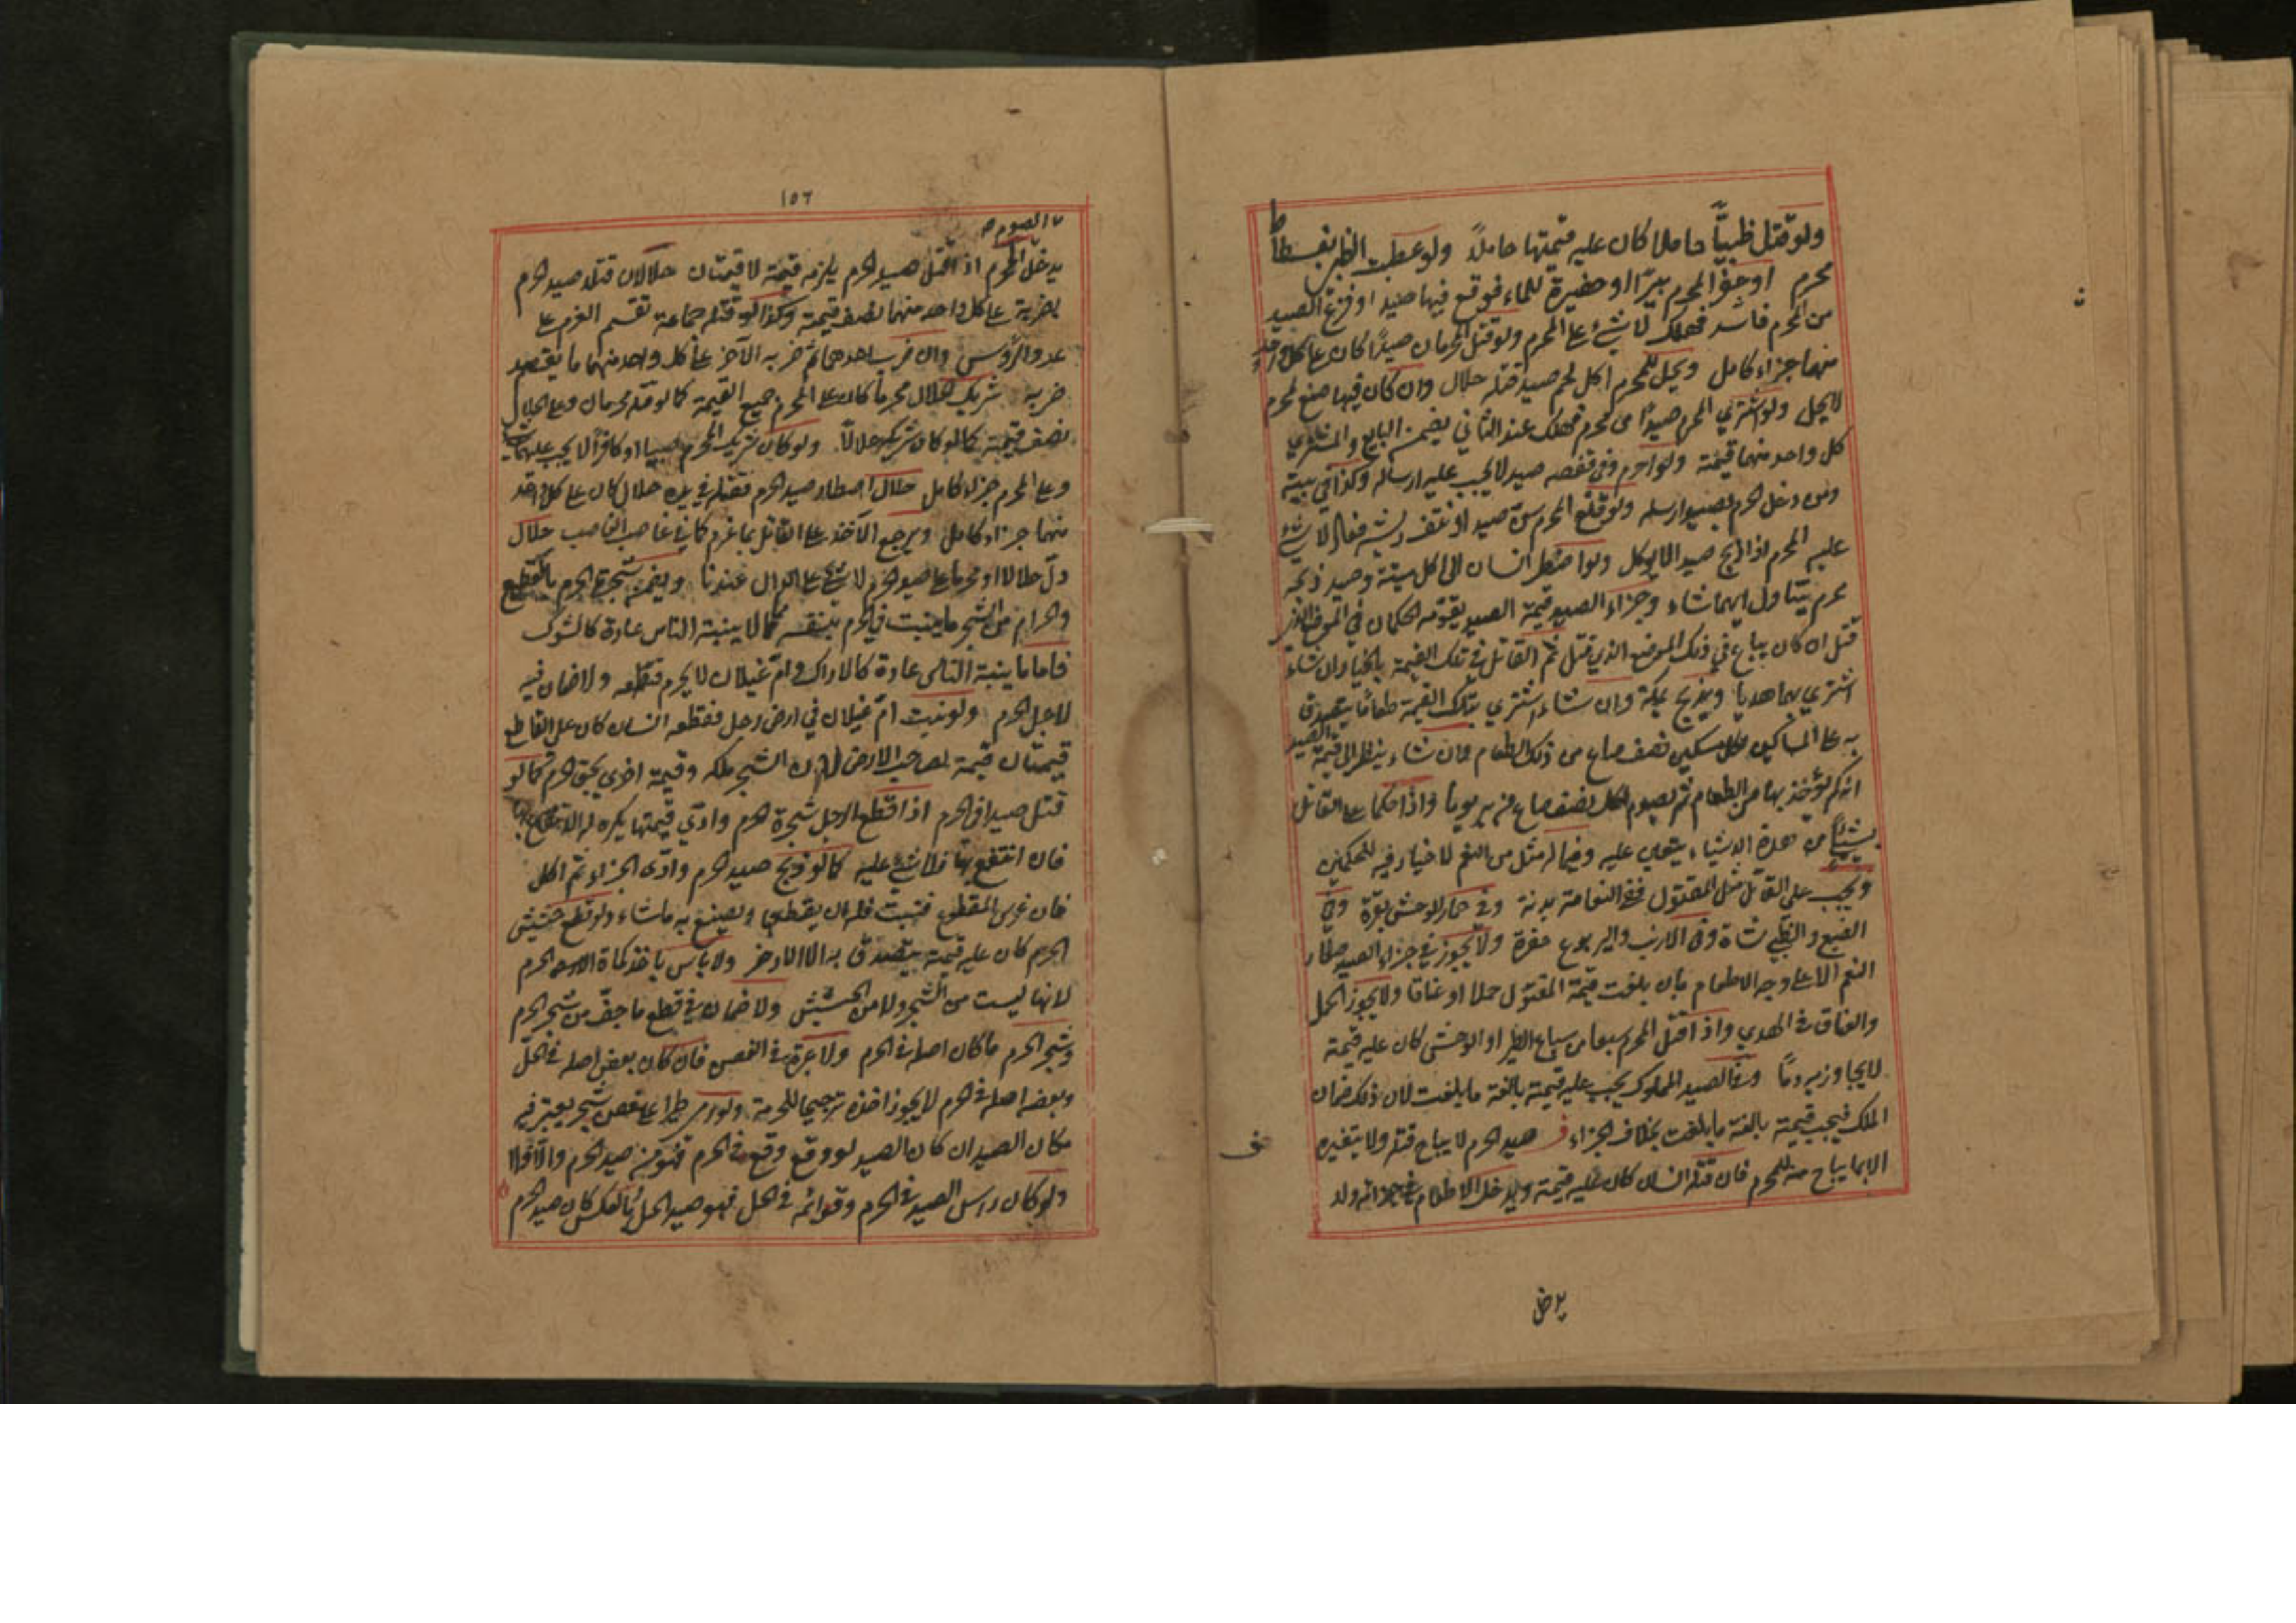 ولو قتل ظبيًا حاملا كان عليه قيمتها حاملًا ولو عطب الظبي بفسطاط
محرم او حفر المحرم بيرًا او حفيرة للماء فوقع فيها صيد او فزع الصيد
من المحرم فاشتد فهلك لا شيء على المحرم ولو قتل المحرمان صيدًا كان على كل واحد
منهما جزاء كامل ويحل للمحرم اكل لحم صيد قتله حلال وان كان فيها صنع لمحرم
لا يحل ولو اشترى المحرم صيدًا من محرم فهلك عند الثاني يضمن البايع والمشتري
كل واحد منهما قيمته ولو احرم وفي قفصه صيد لا يجب عليه ارساله وكذا في بيته
ومن دخل الحرم بصيد ارسله ولو قلع المحرم سن صيد او نتف ريشه فعاد لا شيء
عليه المحرم اذا ذبح صيدا لا يوكل ولو اضطر انسان الى اكل ميتة وصيد ذبحه
محرم يتناول ايهما شاء وجزاء الصيد قيمة الصيد يقومه الحكمان في الموضع الذي
قتل ان كان يباع في ذلك الموضع الذي قتل ثم القاتل في تلك القيمة بالخيار ان شاء
اشترى بها هديا ويذبح بمكة وان شاء اشترى بتلك القيمة طعامًا يتصدق
به على المساكين لكل مسكين نصف صاع من ذلك الطعام وان شاء ينظر الى قيمة الصيد
انه كم يؤخذ بها من الطعام ثم يصوم لكل نصف صاع من بر يوما واذا حكما على القاتل
بشيء من هذه الاشياء يتعين عليه وفيما له مثل من النعم لا خيار فيه للحكمين
ويجب على القاتل مثل المقتول ففي النعامة بدنة وفي حمار الوحش بقرة وفي
الضبع والظبي شاة وفي الارنب واليربوع جفرة ولا يجوز في جزاء الصيد صغار
النعم الا على وجه الاطعام بان بلغت قيمة المقتول حملا او عناقا ولا يجوز الحمل
والعناق في الهدي واذا قتل المحرم سبعا من سباع الطير او الوحش كان عليه قيمته
لا يجاوز به دمًا وفي الصيد المملوك يجب عليه قيمته بالغة ما بلغت لان ذلك ضمان
الملك فيجب قيمته بالغة ما بلغت بخلاف الجزاء صيد الحرم لا يباح قتله ولا يتغير
الا بما يباح منه للمحرم فان قتله انسان كان عليه قيمته ويدخل الاطعام في جزائه ولا
يدخل
١٥٦
الصوم
يدخل المحرم اذا قتل صيد الحرم يلزمه قيمة لا قيمتان حلالان قتلا صيد الحرم
بضربة على كل واحد منهما نصف قيمته وكذا لو قتله جماعة تقسم الغرم على
عدد الرؤس وان ضرب احدهما ثم ضربه الآخر على كل واحد منهما ما يقتضيه
ضربه شريك الحلال محرمًا كان على المحرم جميع القيمة كما لو قتله محرمان وعلى الحلال
نصف قيمته كما لو كان شريكه حلالًا ولو كان شريك المحرم صبيا او كافرًا لا يجب عليهما شيء
وعلى المحرم جزاء كامل حلال اصطاد صيد الحرم فقتله في يده حلال كان على كل واحد
منهما جزاء كامل ويرجع الآخذ على القاتل بما غرم كما في غاصب الغاصب حلال
دل حلالا او محرما على صيد الحرم لا شيء على الدال عندنا ويضمن شجرة الحرم بالقطع
والحرام من الشجر ما ينبت في الحرم بنفسه مما لا ينبته الناس عادة كالشوك
فاما ما ينبته الناس عادة كالاراك وام غيلان لا يحرم قطعه ولا ضمان فيه
لاجل الحرم ولو نبت ام غيلان في ارض رجل فقطعه انسان كان على القاطع
قيمتان قيمة لصاحب الارض لان الشجر ملكه وقيمة اخرى بحق الحرم كما لو
قتل صيدا في الحرم اذا قطع الرجل شجرة الحرم وادى قيمتها يكره له الانتفاع بها
فان انتفع بها فلا شيء عليه كما لو ذبح صيد الحرم وادى الجزاء ثم اكل
فان غرس المقطوع فنبت فله ان يقطعها ويصنع به ما شاء ولو قطع حشيش
الحرم كان عليه قيمته يتصدق به الا الاذخر ولا باس باخذ كماة الحرم
لانها ليست من الشجر ولا من الحشيش ولا ضمان في قطع ما جف من شجر الحرم
وشجر الحرم ما كان اصله في الحرم ولا عبرة في الغصن فان كان بعض اصله في الحل
وبعض اصله في الحرم لا يجوز اخذه ترجيحا للحرمة ولو رمى طيرا على غصن شجر يعتبر فيه
مكان الصيد ان كان الصيد لو وقع وقع في الحرم فهو من صيد الحرم والا فلا
ولو كان راس الصيد في الحرم وقوائمه في الحل فهو صيد الحل وبالعكس كان صيد الحرم